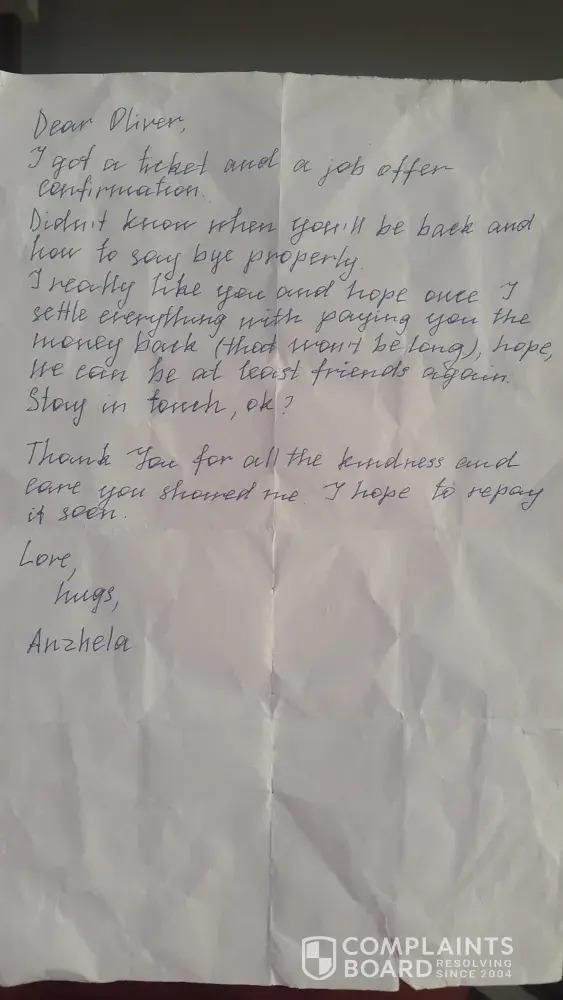 Dear Oliver,
I got a ticket and a job offer
confirmation.
Didn't know when you'll be back and
how to say bye properly.
I really like you and hope once I
settle everything with paying you the
money back (that won't be long), hope,
we can be at least friends again.
Stay in touch, ok?
Thank You for all the kindness and
care you showed me. I hope to repay
it soon.
Love,
hugs,
Anzhela
COMPLAINTS
BOARD RESOLVING
SINCE 2004